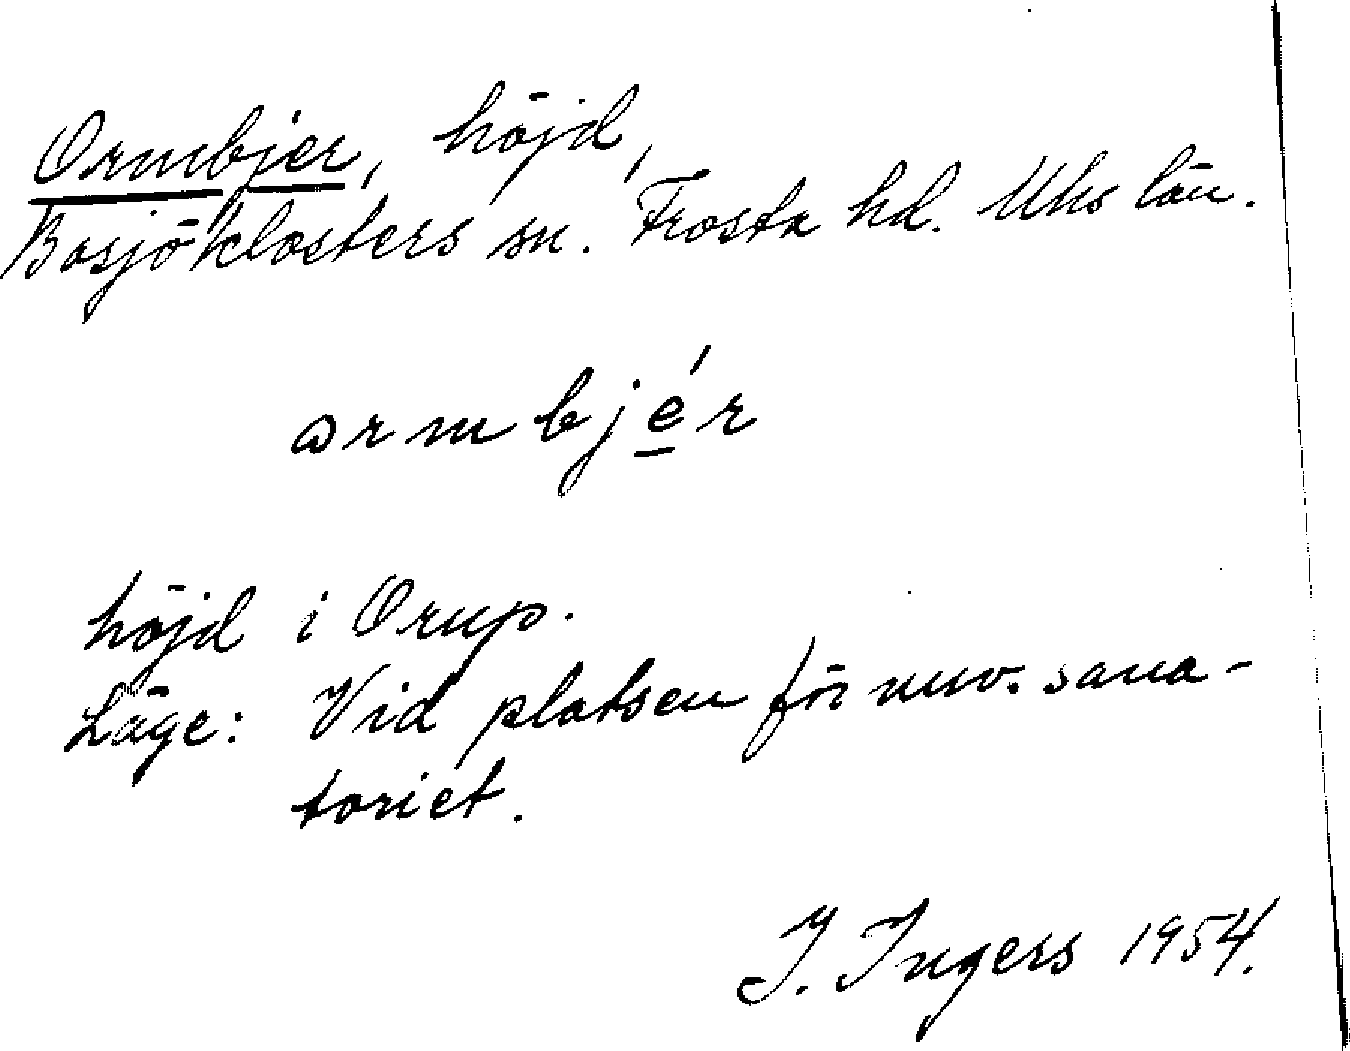 Ormbjer, höjd,
Bosjöklosters sn. Frosta hd. Mhs län.
ormbjér
höjd i Orup.
Läge: Vid platsen för nuv. sana-
toriet.
I. Ingers 1954.